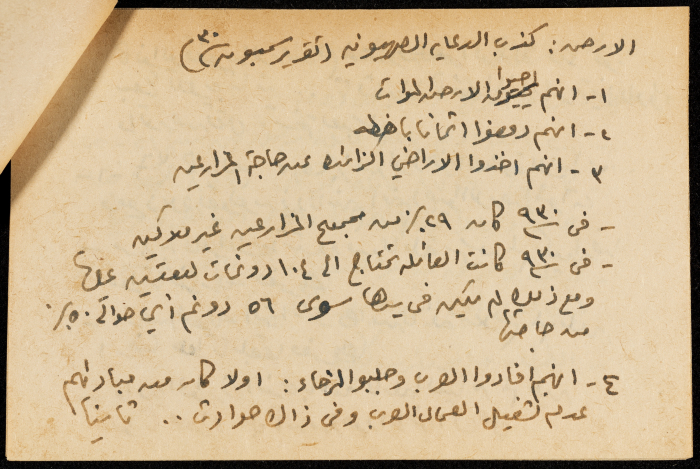 الارض : كذب الدعايه الصهيونيه (تقرير سمبسون ٣٠)
١- انهم احيوا الارض الموات
٢- انهم دفعوا اثمانا باهظه
٣- انهم اخذوا الاراضي الزائده عن حاجة المزارعين
- فى ٩٣٠ كان ٢٩٪ من مجموع المزارعين غير ملاكين
- فى ٩٣٠ كانت العائله تحتاج الى ١٠٤ دونمات لتعتيش عليها
ومع ذلك لم يكن فى يدها سوى ٥٦ دونم أي حوالى ٥٠٪
من حاجتها
٤- انهم افادوا العرب وجلبوا الرخاء : اولا كان من مبادئهم
عدم تشغيل العمال العرب وفى ذلك حوادث .. ثانيا